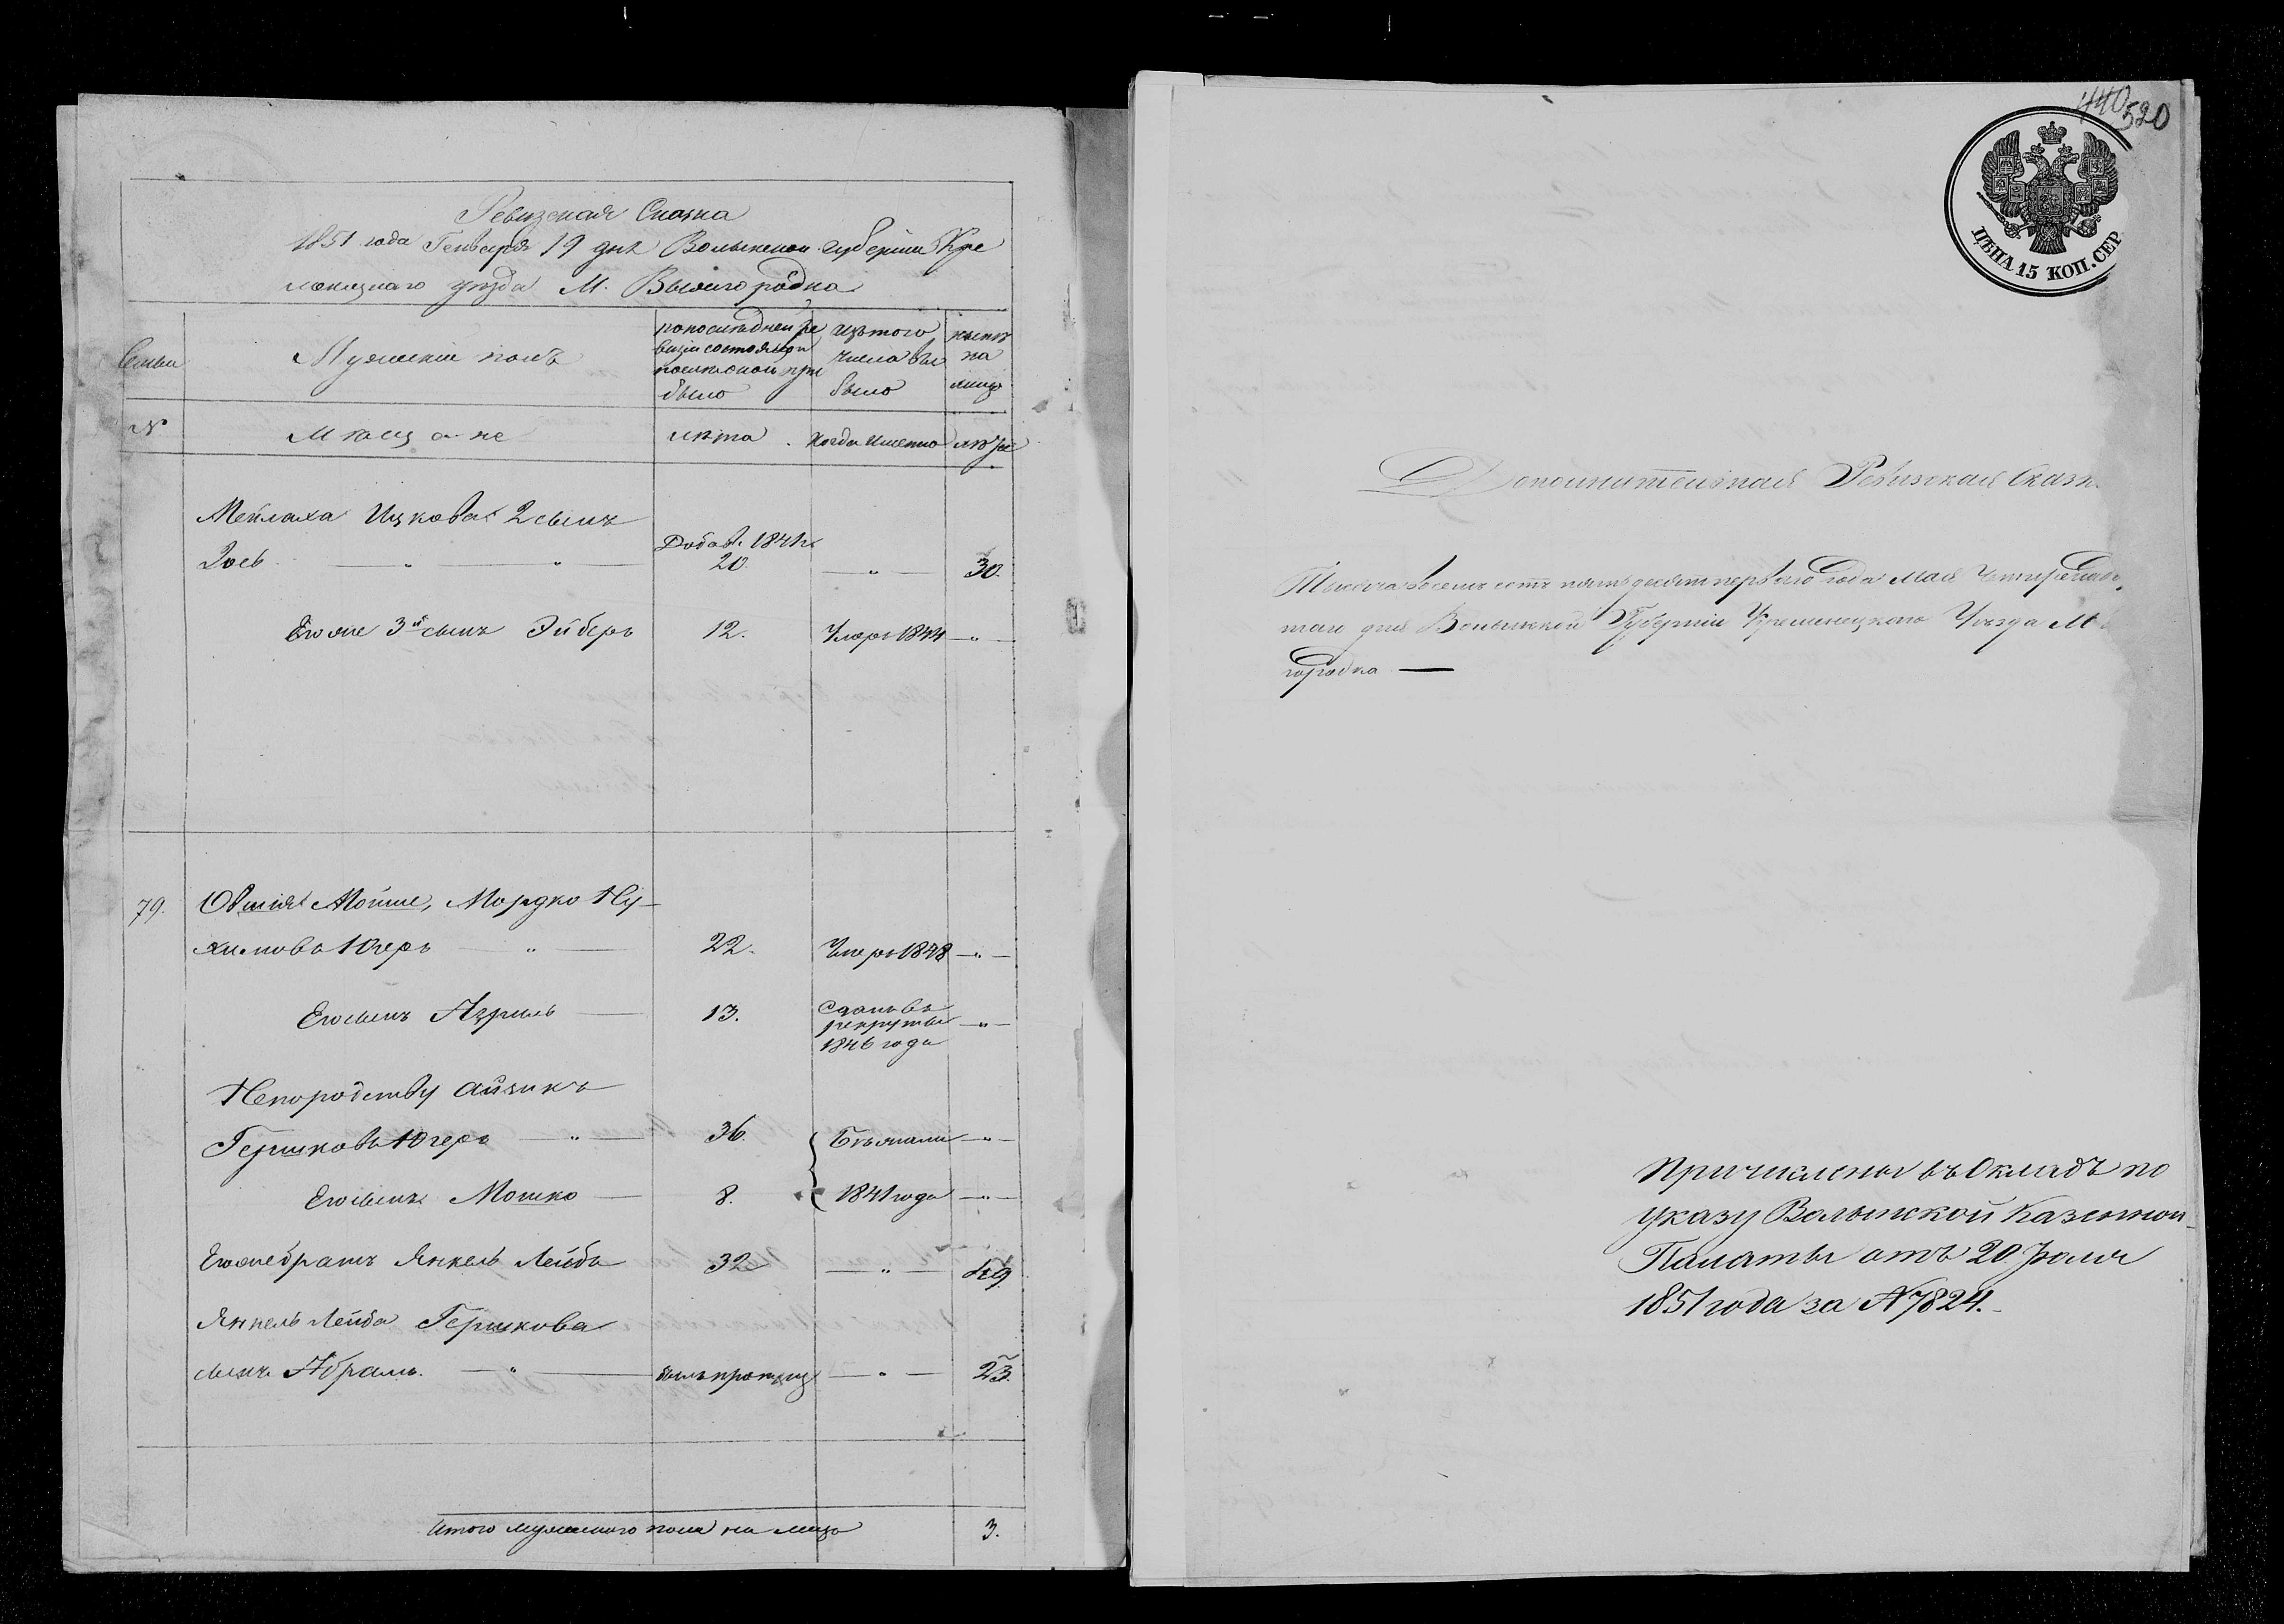 Ревизская Сказка
1851 года Генваря 19 дня Волынской губернии Кре
менецкаго уезда М. Вышегородка
Семьи
Мужескій полъ
по последней ре
визіи состояло и
после оной при
было
изъ того
числа вы
было
ныне
на
лицо
№
Мещане
лета
когда именно
лета
Мейлаха Ицкова 2 сынъ
Зосъ
Добав. 1841 г.
20
— " —
30.
Его же 3й сынъ Эйберъ
12.
Умеръ 1844
— " —
79.
Овшія Мойше, Мордко Ну-
химовъ Югеръ — " —
22.
Умеръ 1848
— " —
Его сынъ Азриль —
13.
Сданъ въ
рекруты
1846 года
— " —
Не по родству Айзикъ
Гершковъ Югеръ — " —
36.
Бежали
— " —
Его сынъ Мошко —
8.
1841 года
— " —
Его же братъ Янкель Лейба
32
— " —
42
Янкель Лейба Гершкова
сынъ Абрамъ. — " —
былъ пропущ
— " —
23.
Итого мужескаго пола на лицо
3.
440
520
ЦѢНА 15 КОП. СЕР
Дополнительная Ревизская Сказк
Тысяча восемь сотъ пятьдесятъ перваго года мая Четырнадца
таго дня Волынской Губерніи Кременецкаго Уезда М
городка —
Причислены въ Окладъ по
указу Волынской Казенной
Палаты отъ 20 Іюля
1851 года за № 7824.